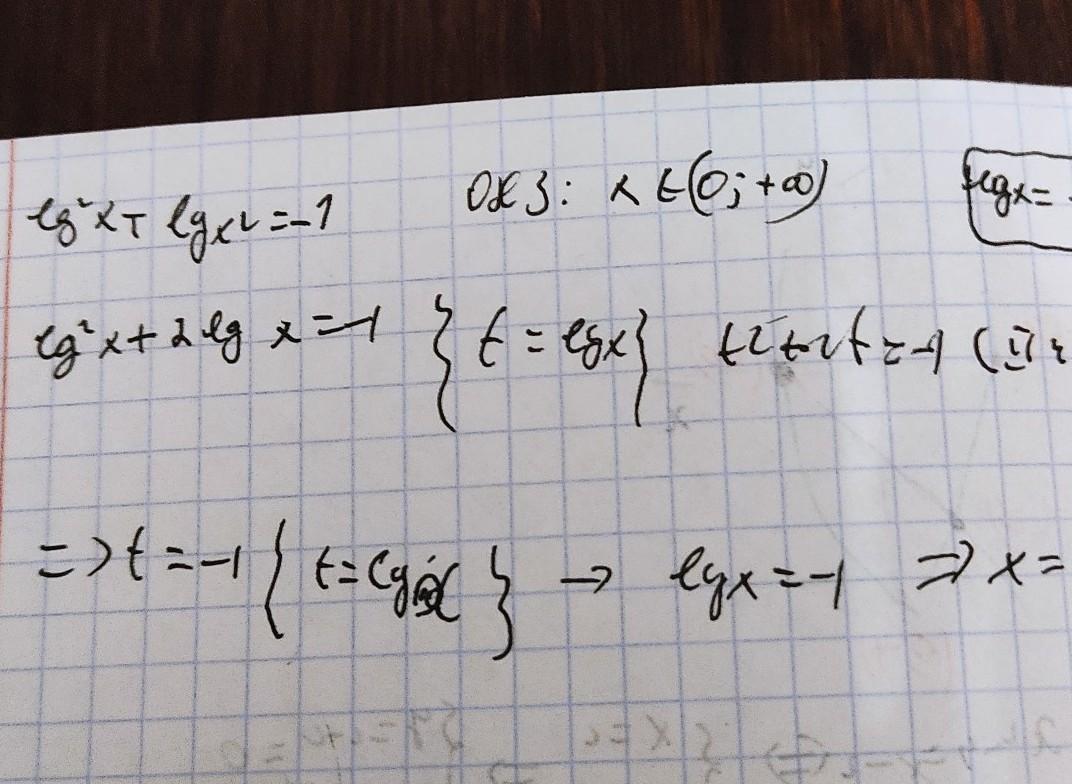 lg²x + lg x² = -1 ОДЗ: x ∈ (0; +∞) lg x =
lg²x + 2 lg x = -1 { t = lg x } t² + 2t = -1
=> t = -1 { t = lg x } → lg x = -1 => x =